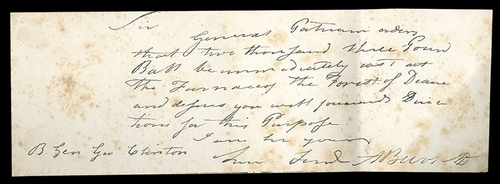 Sir
General Putnam orders
that two thousand three Poun
Ball be immediately cast at
the Furnace of the Forest of Deane
and desires you will forward Direc
tions for this Purpose
I am Sir your
B Gen Geo Clinton Hum Servt A Burr